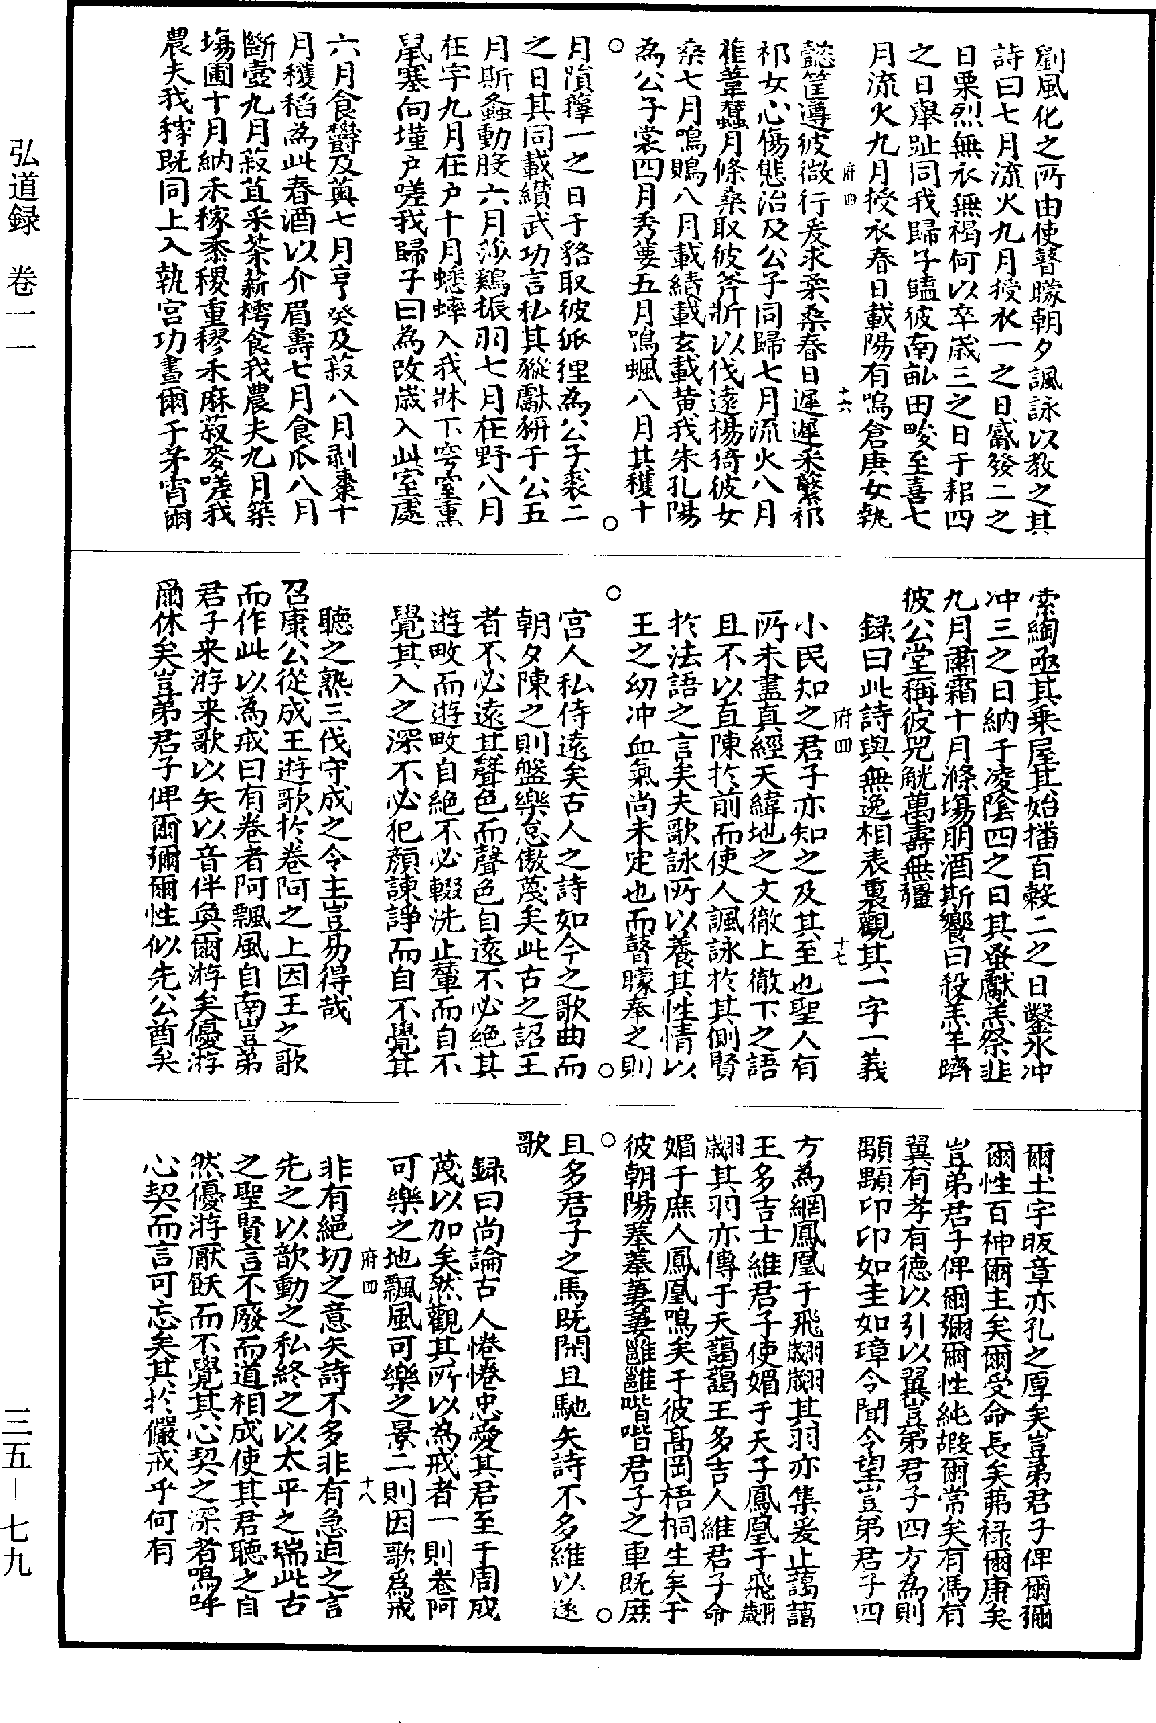 劉風化之所由使瞽矇朝夕諷詠以教之其
詩曰七月流火九月授衣一之日觱發二之
日栗烈無衣無褐何以卒歲三之日于耜四
之日舉趾同我歸子饁彼南畝田畯至喜七
月流火九月授衣春日載陽有鳴倉庚女執
府四 十六
懿筐遵彼微行爰求柔桑春日遲遲采蘩祁
祁女心傷悲殆及公子同歸七月流火八月
萑葦蠶月條桑取彼斧斨以伐遠揚猗彼女
桑七月鳴鵙八月載績載玄載黄我朱孔陽
為公子裳四月秀葽五月鳴蜩八月其穫十
月隕蘀一之日于貉取彼狐狸為公子裘二
之日其同載纘武功言私其豵獻豜于公五
月斯螽動股六月莎鷄振羽七月在野八月
在宇九月在户十月蟋蟀入我牀下穹窒熏
鼠塞向墐户嗟我歸子曰為改歲入此室處
六月食鬱及薁七月亨癸及菽八月剥棗十
月穫稻為此春酒以介眉壽七月食瓜八月
斷壺九月菽苴采荼薪樗食我農夫九月築
塲圃十月納禾稼黍稷重穋禾麻菽麥嗟我
農夫我稼既同上入執宫功晝爾于茅宵爾
索綯亟其乗屋其始播百穀二之日鑿氷冲
冲三之日納于凌陰四之日其蚤獻羔祭韭
九月肅霜十月滌塲朋酒斯饗曰殺羔羊躋
彼公堂稱彼兕觥萬壽無疆
録曰此詩與無逸相表裏觀其一字一義
府四 十七
小民知之君子亦知之及其至也聖人有
所未盡真經天緯地之文徹上徹下之語
且不以直陳於前而使人諷詠於其側賢
於法語之言矣夫歌詠所以養其性情以
王之幼冲血氣尚未定也而瞽矇奉之則
宫人私侍遠矣古人之詩如今之歌曲而
朝夕陳之則盤樂怠傲蔑矣此古之詔王
者不必遠其聲色而聲色自遠不必絶其
遊畋而遊畋自絶不必輟洗止輦而自不
覺其入之深不必犯顔諫諍而自不覺其
聽之熟三代守成之令主豈易得哉
召康公從成王遊歌於卷阿之上因王之歌
而作此以為戒曰有卷者阿飄風自南豈弟
君子来游来歌以矢以音伴奐爾游矣優游
爾休矣豈弟君子俾爾彌爾性似先公酋矣
爾土宇昄章亦孔之厚矣豈弟君子俾爾彌
爾性百神爾主矣爾受命長矣茀禄爾康矣
豈弟君子俾爾彌爾性純嘏爾常矣有馮有
翼有孝有德以引以翼豈弟君子四方為則
顒顒卬卬如圭如璋令聞令望豈弟君子四
方為綱鳳凰于飛翽翽其羽亦集爰止藹藹
王多吉士維君子使媚于天子鳳凰于飛翽
翽其羽亦傅于天藹藹王多吉人維君子命
媚于庶人鳳凰鳴矣于彼高岡梧桐生矣于
彼朝陽菶菶萋萋雝雝喈喈君子之車既庶
且多君子之馬既閑且馳矢詩不多維以遂
歌
録曰尚論古人惓惓忠愛其君至于周成
蔑以加矣然觀其所以為戒者一則卷阿
可樂之地飄風可樂之景二則因歌為戒
府四 十八
非有絕切之意矢詩不多非有急迫之言
先之以歆動之私終之以太平之瑞此古
之聖賢言不廢而道相成使其君聽之自
然優游厭飫而不覺其心契之深者嗚呼
心契而言可忘矣其於儼戒乎何有
弘道録 卷一一
三五－七九